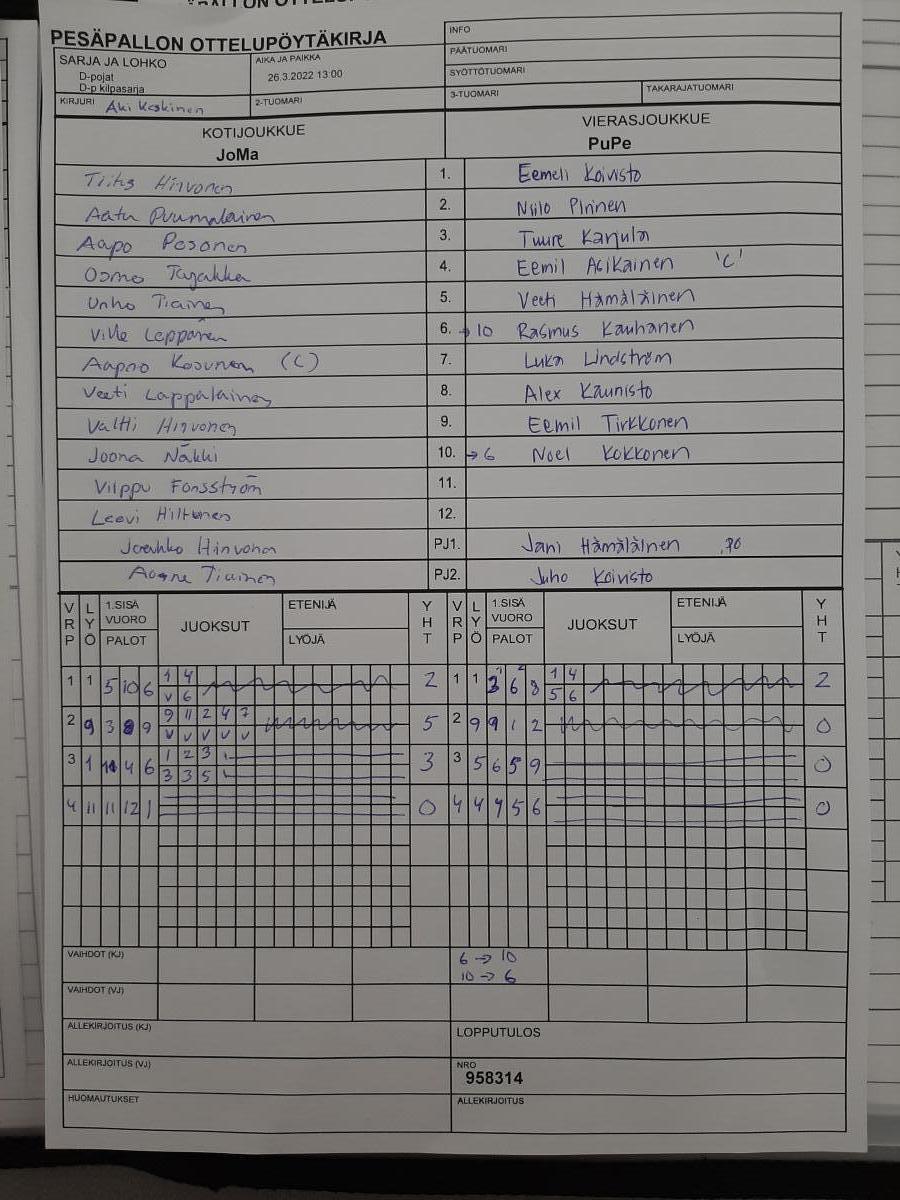 PESÄPALLON OTTELUPÖYTÄKIRJA
INFO
PÄÄTUOMARI
SYÖTTÖTUOMARI
3-TUOMARI
TAKARAJATUOMARI
SARJA JA LOHKO
D-pojat
D-p kilpasarja
AIKA JA PAIKKA
26.3.2022 13:00
KIRJURI Aki Keskinen
2-TUOMARI
KOTIJOUKKUE
JoMa
VIERASJOUKKUE
PuPe
Hirvonen 1. Eemeli Koivisto
Aatu Puumalainen 2. Niilo Pirinen
Aapo Pesonen 3. Tuure Karjula
Osmo 4. Eemil Asikainen 'C'
Unho Tiainen 5. Veeti Hämäläinen
Ville Leppänen 6. → 10 Rasmus Kauhanen
Kosunen (C) 7. Luka Lindström
Veeti Lappalainen 8. Alex Kaunisto
Valtti Hirvonen 9. Eemil Tirkkonen
Joona Näkki 10. → 6 Noel Kokkonen
Vilppu Forsström 11.
Leevi Hiltunen 12.
Hirvonen PJ1. Jani Hämäläinen
Tiainen PJ2. Juho Koivisto
VRP LYÖ 1.SISÄ VUORO PALOT JUOKSUT ETENIJÄ LYÖJÄ YHT VRP LYÖ 1.SISÄ VUORO PALOT JUOKSUT ETENIJÄ LYÖJÄ YHT
1 4 1 4
1 1 5 10 6 2 1 1 3 6 8 2
V 6 5 6
9 11 2 4 7
2 9 3 8 9 5 2 9 9 1 2 0
V V V V V
1 2 3
3 1 4 6 3 3 5 6 5 9 0
3 3 5
4 11 11 12 1 0 4 4 9 5 6 0
VAIHDOT (KJ)
6 → 10
10 → 6
VAIHDOT (VJ)
ALLEKIRJOITUS (KJ)
LOPPUTULOS
ALLEKIRJOITUS (VJ)
NRO
958314
HUOMAUTUKSET
ALLEKIRJOITUS